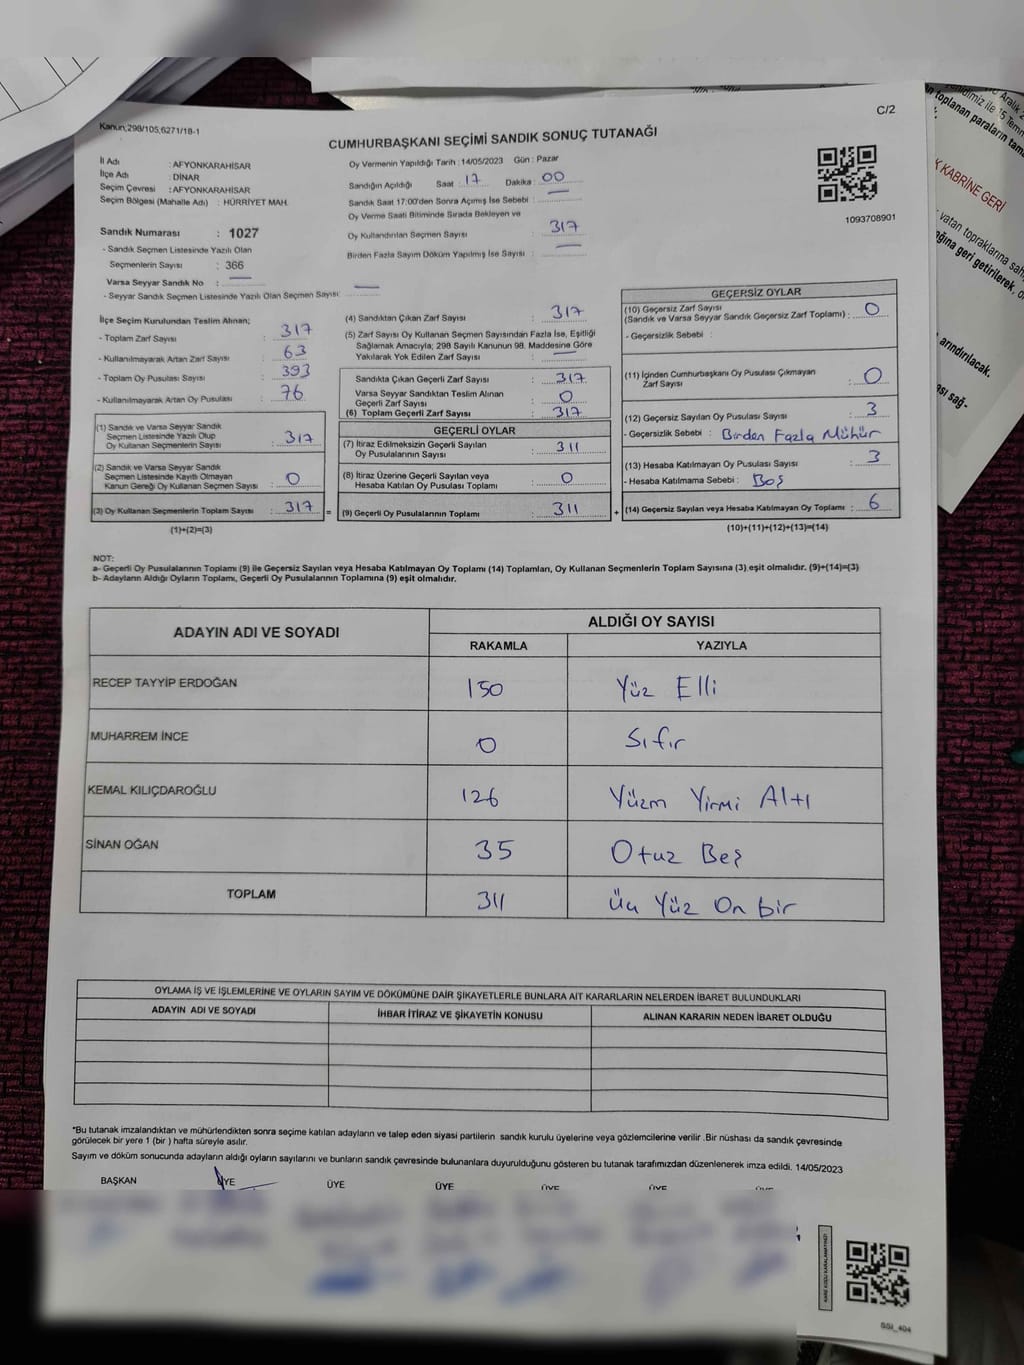 C/2
Kanun;298/105,6271/18-1
CUMHURBAŞKANI SEÇİMİ SANDIK SONUÇ TUTANAĞI
İl Adı : AFYONKARAHİSAR
İlçe Adı : DİNAR
Seçim Çevresi : AFYONKARAHİSAR
Seçim Bölgesi (Mahalle Adı) : HÜRRİYET MAH.
Sandık Numarası : 1027
- Sandık Seçmen Listesinde Yazılı Olan
Seçmenlerin Sayısı : 366
Varsa Seyyar Sandık No :
- Seyyar Sandık Seçmen Listesinde Yazılı Olan Seçmen Sayısı:
Oy Vermenin Yapıldığı Tarih : 14/05/2023 Gün : Pazar
Sandığın Açıldığı Saat : 17 Dakika : 00
Sandık Saat 17:00'den Sonra Açımış İse Sebebi :
Oy Verme Saati Bitiminde Sırada Bekleyen ve
Oy Kullandırılan Seçmen Sayısı : 317
Birden Fazla Sayım Döküm Yapılmış İse Sayısı :
1093708901
İlçe Seçim Kurulundan Teslim Alınan;
- Toplam Zarf Sayısı : 317
- Kullanılmayarak Artan Zarf Sayısı : 63
- Toplam Oy Pusulası Sayısı : 393
- Kullanılmayarak Artan Oy Pusulası : 76
(1) Sandık ve Varsa Seyyar Sandık
Seçmen Listesinde Yazılı Olup
Oy Kullanan Seçmenlerin Sayısı : 317
(2) Sandık ve Varsa Seyyar Sandık
Seçmen Listesinde Kayıtlı Olmayan
Kanun Gereği Oy Kullanan Seçmen Sayısı : 0
(3) Oy Kullanan Seçmenlerin Toplam Sayısı : 317 =
(1)+(2)=(3)
(4) Sandıktan Çıkan Zarf Sayısı : 317
(5) Zarf Sayısı Oy Kullanan Seçmen Sayısından Fazla İse, Eşitliği
Sağlamak Amacıyla; 298 Sayılı Kanunun 98. Maddesine Göre
Yakılarak Yok Edilen Zarf Sayısı :
Sandıkta Çıkan Geçerli Zarf Sayısı : 317
Varsa Seyyar Sandıktan Teslim Alınan
Geçerli Zarf Sayısı : 0
(6) Toplam Geçerli Zarf Sayısı : 317
GEÇERLİ OYLAR
(7) İtiraz Edilmeksizin Geçerli Sayılan
Oy Pusulalarının Sayısı : 311
(8) İtiraz Üzerine Geçerli Sayılan veya
Hesaba Katılan Oy Pusulası Toplamı : 0
(9) Geçerli Oy Pusulalarının Toplamı : 311 +
GEÇERSİZ OYLAR
(10) Geçersiz Zarf Sayısı
(Sandık ve Varsa Seyyar Sandık Geçersiz Zarf Toplamı) : 0
- Geçersizlik Sebebi :
(11) İçinden Cumhurbaşkanı Oy Pusulası Çıkmayan
Zarf Sayısı : 0
(12) Geçersiz Sayılan Oy Pusulası Sayısı : 3
- Geçersizlik Sebebi : Birden Fazla Mühür
(13) Hesaba Katılmayan Oy Pusulası Sayısı : 3
- Hesaba Katılmama Sebebi : Boş
(14) Geçersiz Sayılan veya Hesaba Katılmayan Oy Toplamı : 6
(10)+(11)+(12)+(13)=(14)
NOT:
a- Geçerli Oy Pusulalarının Toplamı (9) ile Geçersiz Sayılan veya Hesaba Katılmayan Oy Toplamı (14) Toplamları, Oy Kullanan Seçmenlerin Toplam Sayısına (3) eşit olmalıdır. (9)+(14)=(3)
b- Adayların Aldığı Oyların Toplamı, Geçerli Oy Pusulalarının Toplamına (9) eşit olmalıdır.
ADAYIN ADI VE SOYADI
ALDIĞI OY SAYISI
RAKAMLA YAZIYLA
RECEP TAYYİP ERDOĞAN 150 Yüz Elli
MUHARREM İNCE 0 Sıfır
KEMAL KILIÇDAROĞLU 126 Yüzm Yirmi Altı
SİNAN OĞAN 35 Otuz Beş
TOPLAM 311 Üç Yüz On bir
OYLAMA İŞ VE İŞLEMLERİNE VE OYLARIN SAYIM VE DÖKÜMÜNE DAİR ŞİKAYETLERLE BUNLARA AİT KARARLARIN NELERDEN İBARET BULUNDUKLARI
ADAYIN ADI VE SOYADI İHBAR İTİRAZ VE ŞİKAYETİN KONUSU ALINAN KARARIN NEDEN İBARET OLDUĞU
"Bu tutanak imzalandıktan ve mühürlendikten sonra seçime katılan adayların ve talep eden siyasi partilerin sandık kurulu üyelerine veya gözlemcilerine verilir .Bir nüshası da sandık çevresinde
görülecek bir yere 1 (bir ) hafta süreyle asılır.
Sayım ve döküm sonucunda adayların aldığı oyların sayılarını ve bunların sandık çevresinde bulunanlara duyurulduğunu gösteren bu tutanak tarafımızdan düzenlenerek imza edildi. 14/05/2023
BAŞKAN ÜYE ÜYE ÜYE ÜYE ÜYE ÜYE
SSİ_404
Aralık
15 Tem
toplanan paraların tam
KABRİNE GERİ
vatan topraklarına
geri getirilerek,
arındırılacak.